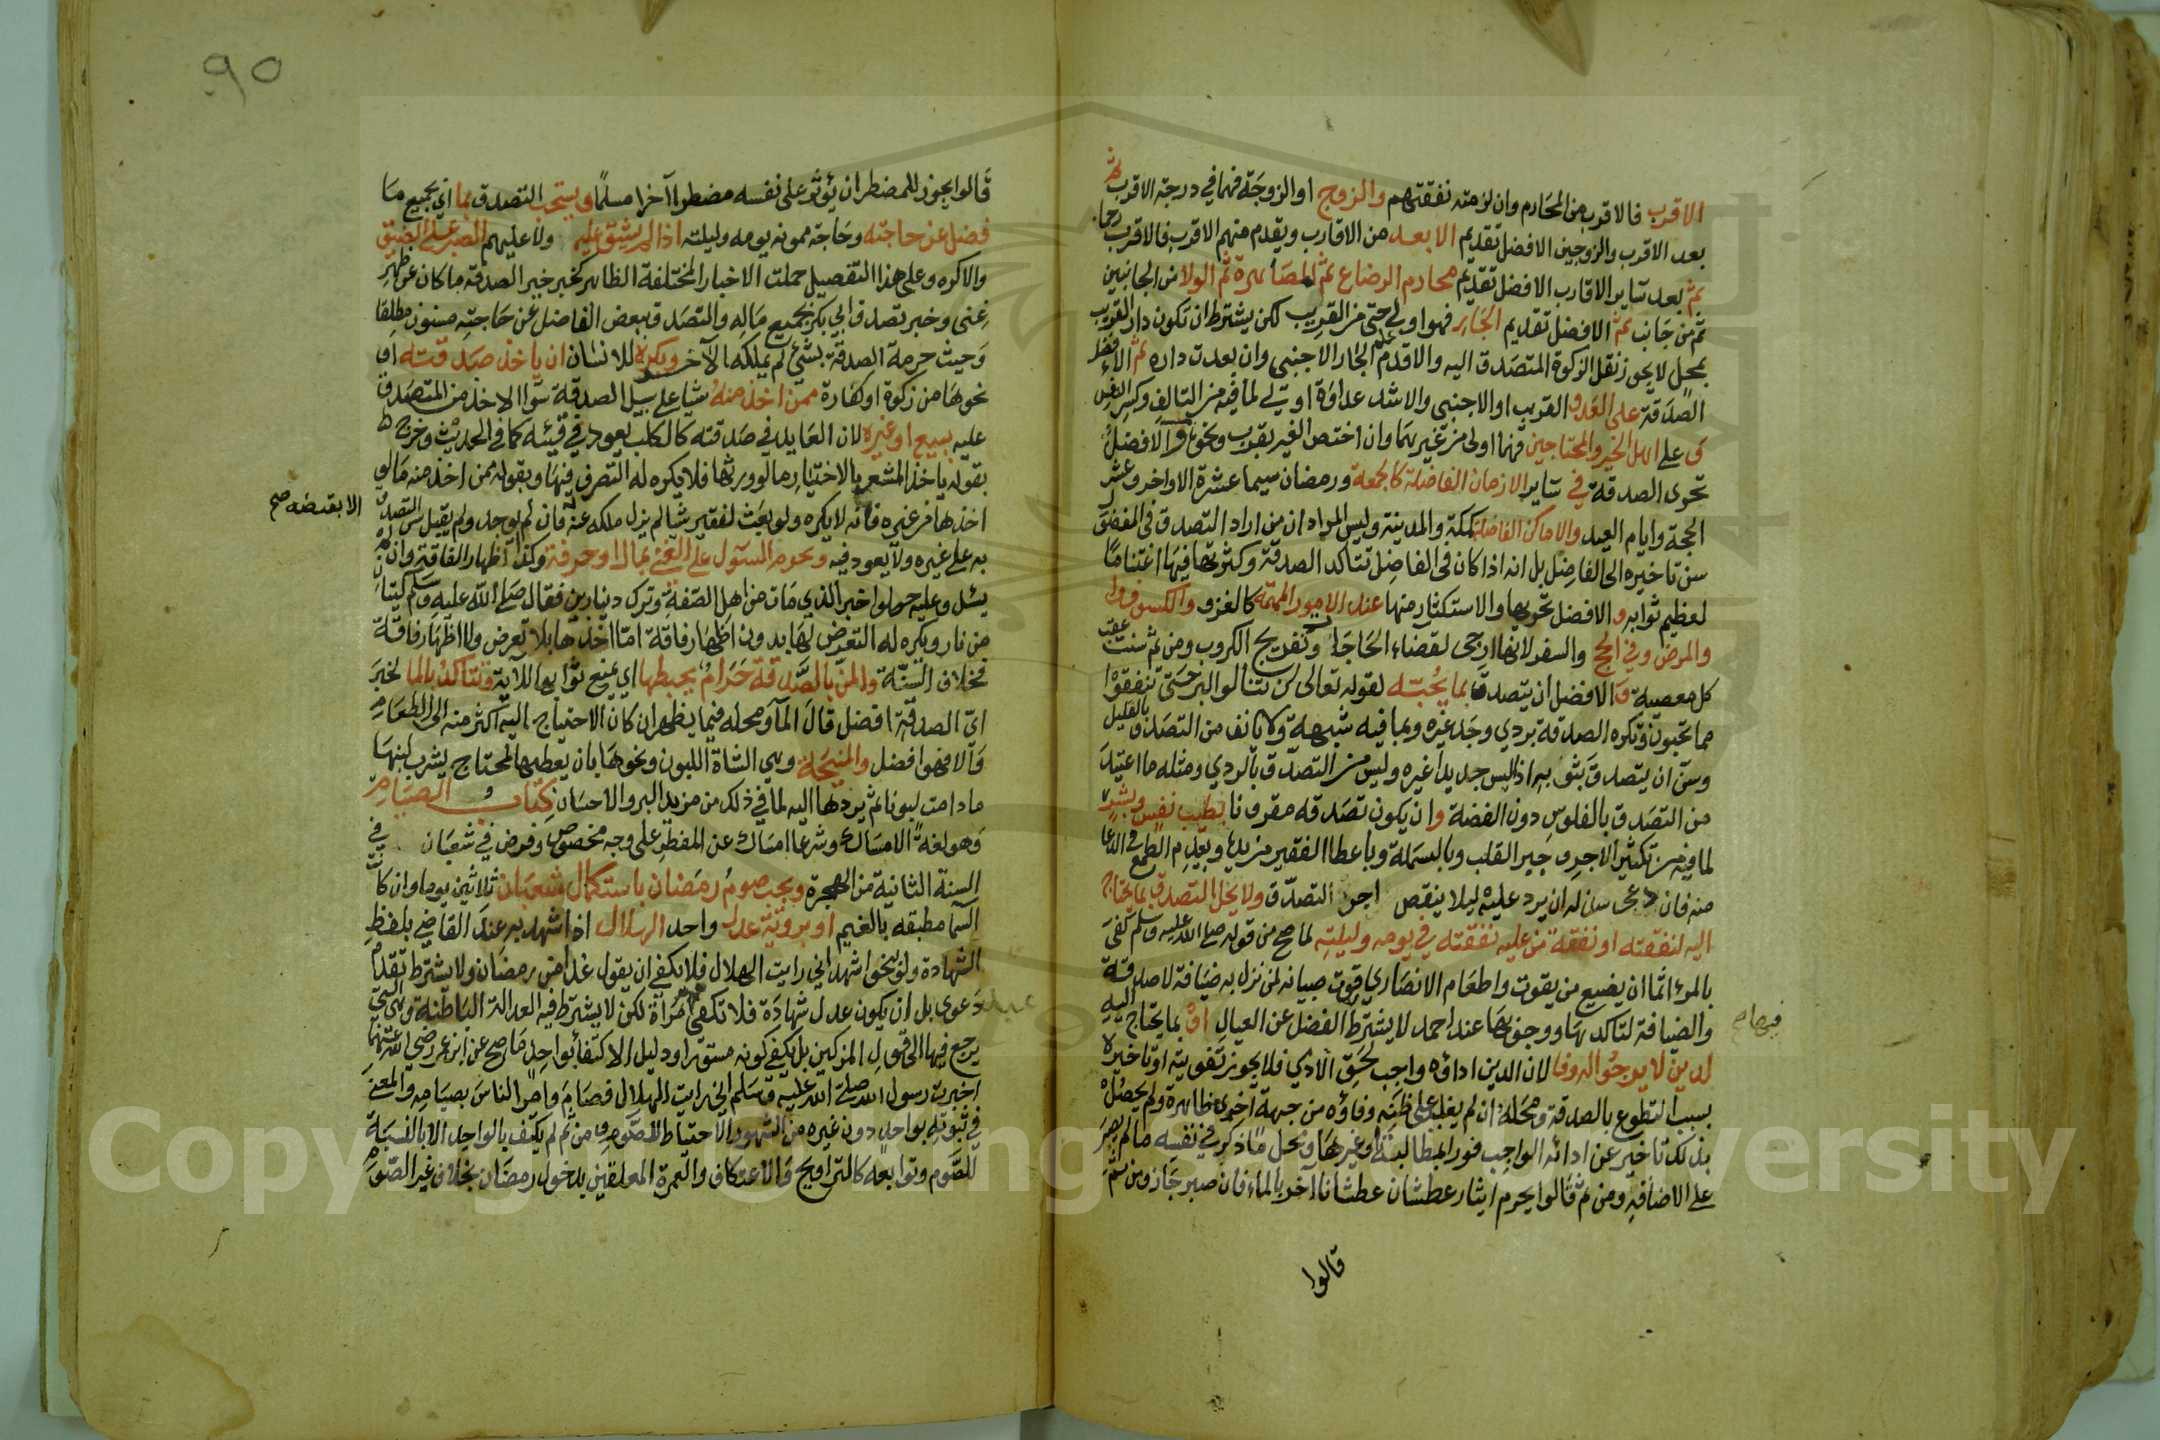 الاقرب فالاقرب من المحارم وان لزمته نفقتهم والزوج او الزوجة فهما في درجة الاقرب ثم
بعد الاقرب والزوجين الافضل تقديم الابعد من الاقارب ويقدم منهم الاقرب فالاقرب رحما
ثم بعد ساير الاقارب الافضل تقديم محارم الرضاع ثم المصاهرة ثم الولا من الجانبين
ثم من جانب ثم الافضل تقديم الجار فهو اولى حتى من القريب لكن يشترط ان تكون دار القريب
بمحل لا يجوز نقل الزكوة المتصدق اليه والا قدم على الجار الاجنبي وان بعدت داره ثم الافضل
الصدقة على العدو القريب او الاجنبي والاشد عداوة اولى لما فيه من التالف وكسر النفس
و على اهل الخير والمحتاجين فهما اولى من غيرهما وان اختص الغير بقرب ونحوه والافضل
تحري الصدقة في ساير الازمان الفاضلة كالجمعة ورمضان سيما عشرة الاواخر وعشر
الحجة وايام العيد والاماكن الفاضلة كمكة والمدينة وليس المراد ان من اراد التصدق في المفضول
سن تاخيره الى الفاضل بل انه اذا كان في الفاضل تتاكد الصدقة وكثرتها فيها اغتناما
لعظيم ثوابه و الافضل تحريها والاستكثار منها عند الامور المهمة كالغزو والكسوف
والمرض وفي الحج والسفر لانها ارجى لقضاء الحاجات وتفريج الكروب ومن ثم سنت عقب
كل معصية و الافضل ان يتصدق بما يحبه لقوله تعالى لن تنالوا البر حتى تنفقوا
مما تحبون وتكره الصدقة بردي وجد غيره وبما فيه شبهة ولا يانف من التصدق بالقليل
وسن ان يتصدق بثوبه اذا لبس جديدا غيره وليس من التصدق بالردي ومثله ما اعتيد
من التصدق بالفلوس دون الفضة وان يكون تصدقه مقرونا بطيب نفس وبشر
لما فيه من تكثير الاجر وجبر القلب وبالبسملة وباعطا الفقير من يده وبعدم الطمع في الدعا
منه فان دعى سن له ان يرد عليه ليلا ينقص اجر التصدق ولا يحل التصدق بما يحتاج
اليه لنفقته او نفقة من عليه نفقته في يومه وليلته لما صح من قوله صلى الله عليه وسلم كفى
بالمرء اثما ان يضيع من يقوت واطعام الانصاري قوت صبيانه لمن نزل به ضيافة لا صدقة
والضيافة لتاكدها ووجوبها عند احمد لا يشترط الفضل عن العيال او بما يحتاج اليه
لدين لا يرجو له وفا لان الدين اداؤه واجب لحق الآدمي فلا يجوز تفويته او تاخيره
بسبب التطوع بالصدقة ومحله ان لم يغلب على ظنه وفاؤه من جهة اخرى ظاهرة ولم يحصل
بذلك تاخير عن ادائه الواجب فورا لمطالبة او غيرها ومحل ما ذكر في نفسه ما لم يصبر
على الاضافة ومن ثم قالوا يحرم ايثار عطشان عطشانا آخر بالماء فان صبر جاز ومن ثم
قالوا
٩٥
قالوا يجوز للمضطر ان يؤثر على نفسه مضطرا آخر مسلما ويستحب التصدق بما اي بجميع ما
فضل عن حاجته وحاجة ممونه يومه وليلته اذا لم يشق عليه ولا عليهم الصبر على الضيق
والا كره وعلى هذا التفصيل حملت الاخبار المختلفة الظاهر كخبر خير الصدقة ما كان عن ظهر
غنى وخبر تصدق ابي بكر بجميع ماله والتصدق ببعض الفاضل عن حاجته مسنون مطلقا
وحيث حرمة الصدقة بشئ لم يملكه الآخر ويكره للانسان ان ياخذ صدقته او
نحوها من زكوة او كفارة ممن اخذ منه شيا على سبيل الصدقة سوا الاخذ من المتصدق
عليه ببيع او غيره لان العايد في صدقته كالكلب يعود في قيئه كما في الحديث وخرج
بقوله ياخذ المشعر بالاختيار ما لو ورثها فلا يكره له التصرف فيها وبقوله ممن اخذ منه ما لو
اخذها من غيره فانه لا يكره ولو بعث لفقير شيا لم يزل ملكه عنه فان لم يوجد ولم يقبل سن التصدق
الا بقبضه صح
به على غيره ولا يعود فيه ويحرم السؤال على الغني بمال او حرفة وكذا اظهار الفاقة وان لم
يسئل وعليه حملوا خبر الذي مات من اهل الصفة وترك دينارين فقال صلى الله عليه وسلم كيتان
من نار ويكره له التعرض لها بدون اظهار فاقة اما اخذها بلا تعرض ولا اظهار فاقة
فخلاف السنة والمن بالصدقة حرام يحبطها اي يمنع ثوابها للآية وتتاكد بالما لخبر
اي الصدقة افضل قال الماء ومحله فيما يظهر ان كان الاحتياج اليه اكثر منه الى الطعام
والا فهو افضل والمنيحة وهي الشاة اللبون ونحوها بان يعطيها لمحتاج يشرب لبنها
ما دامت لبونا ثم يردها اليه لما في ذلك من مزيد البر والاحسان كتاب الصيام
وهو لغة الامساك وشرعا امساك عن المفطر على وجه مخصوص وفرض في شعبان في
السنة الثانية من الهجرة ويجب صوم رمضان باستكمال شعبان ثلاثين يوما وان كانت
السما مطبقه بالغيم او برؤية عدل واحد الهلال اذا شهد به عند القاضي بلفظ
الشهادة ولو بنحو اشهد اني رايت الهلال فلا يكفي ان يقول غدا من رمضان ولا يشترط تقدم
دعوى بل ان يكون عدل شهادة فلا تكفي امراة لكن لا يشترط فيه العدالة الباطنة وهي التي
يرجع فيها الى قول المزكين بل يكفي كونه مستورا ودليل الاكتفا بواحد ما صح عن ابن عمر رضي الله عنهما
اخبرت رسول الله صلى الله عليه وسلم اني رايت الهلال فصام وامر الناس بصيامه والمعنى
في ثبوته بواحد دون غيره من الشهور الاحتياط للصوم ومن ثم لم يكتف بالواحد الا بالنسبة
للصوم وتوابعه كالتراويح والاعتكاف والعمرة المعلقين بدخول رمضان بخلاف غير الصوم